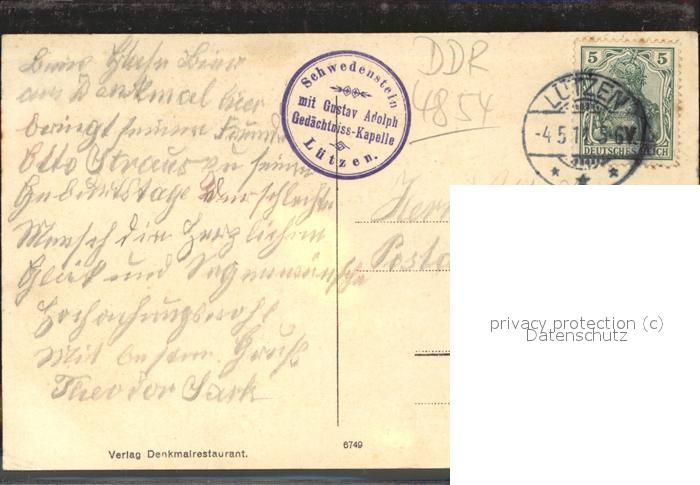 Beim Glase Bier
am Denkmal hier
bringt seinem Freunde
Otto Straus zu seinem
Geburtstage der schlechte
Mensch die herzlichsten
Glück und Segenswünsche
Hochachtungsvoll
Mit bestem Gruß
Theodor Sark
Schwedenstein
mit Gustav Adolph
Gedächtniss-Kapelle
Lützen.
DDR
4854
5 5
DEUTSCHES REICH
LÜTZEN
-4.5.11.5-6V.
Herrn
Verlag Denkmalrestaurant.
6749
privacy protection (c)
Datenschutz